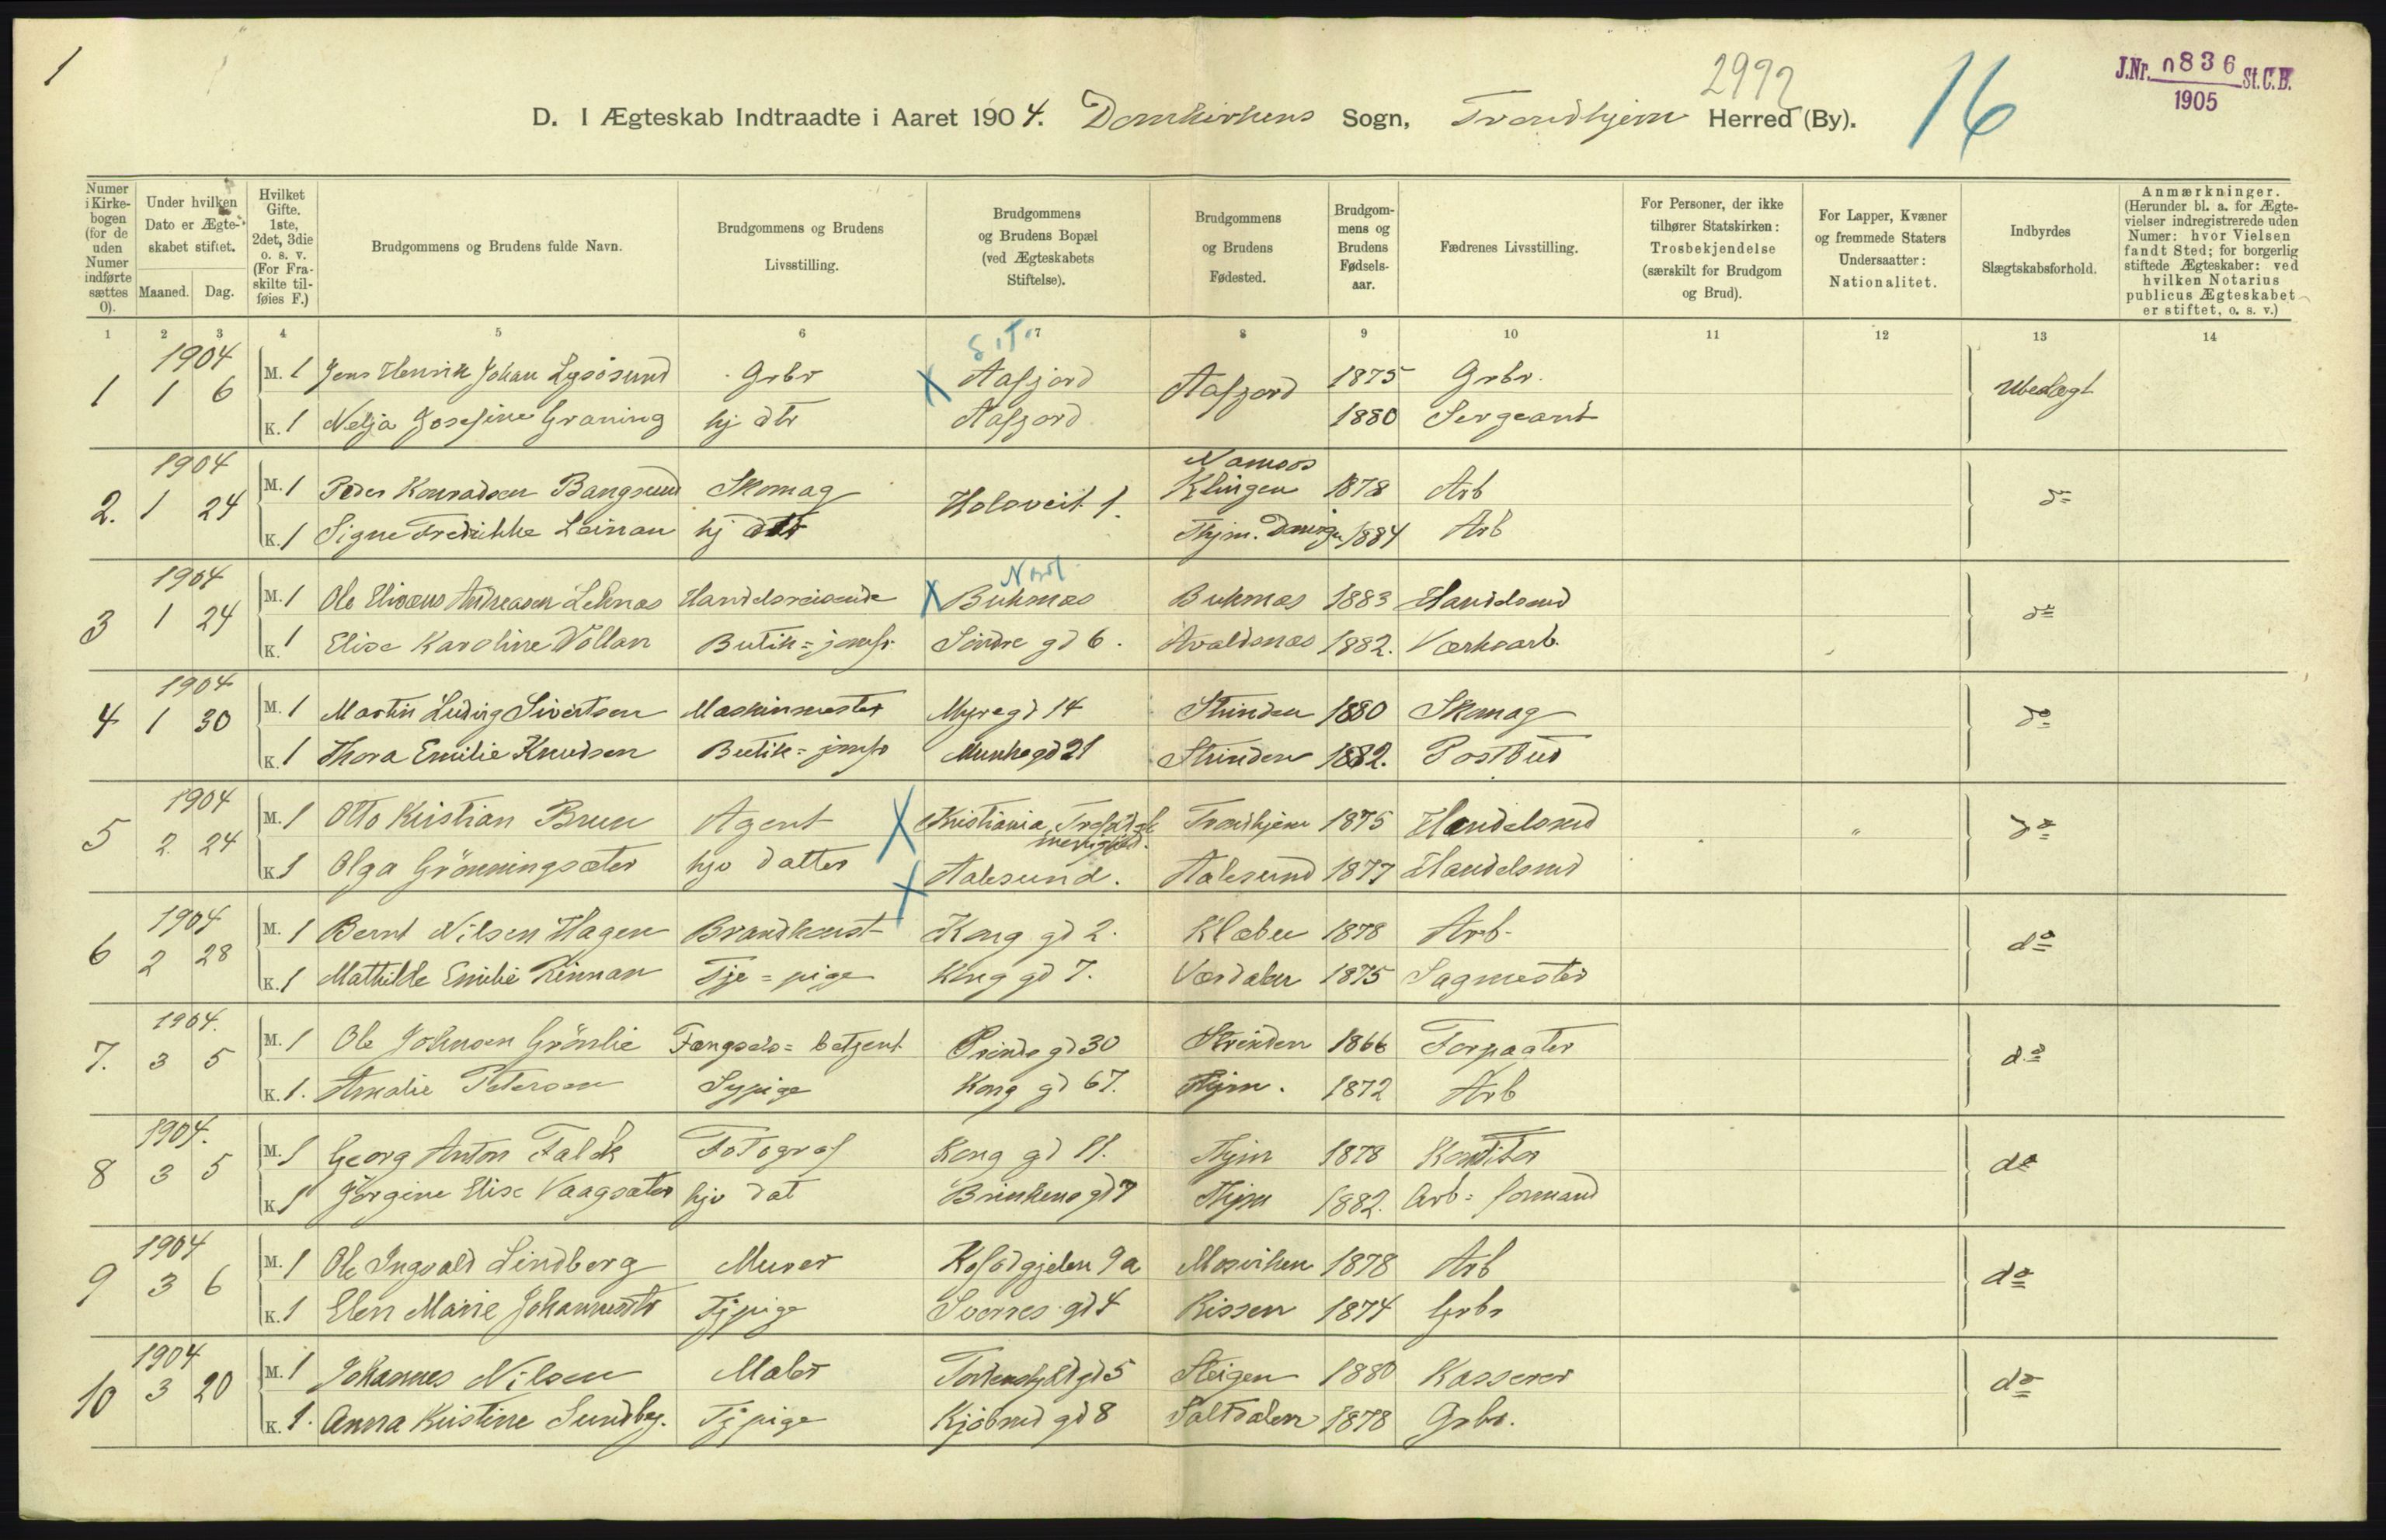 1
2992
16
J.Nr. 0836 St.C.B.
1905
D. I Ægteskab Indtraadte i Aaret 1904. Domkirkens Sogn, Trondhjem Herred (By).
Numer i Kirkebogen (for de uden Numer indførte sættes 0).
Under hvilken Dato er Ægteskabet stiftet.
Maaned. Dag.
Hvilket Gifte. 1ste, 2det, 3die o. s. v. (For Fraskilte tilføies F.)
Brudgommens og Brudens fulde Navn.
Brudgommens og Brudens Livsstilling.
Brudgommens og Brudens Bopæl (ved Ægteskabets Stiftelse).
Brudgommens og Brudens Fødested.
Brudgommens og Brudens Fødselsaar.
Fædrenes Livsstilling.
For Personer, der ikke tilhører Statskirken: Trosbekjendelse (særskilt for Brudgom og Brud).
For Lapper, Kvæner og fremmede Staters Undersaatter: Nationalitet.
Indbyrdes Slægtskabsforhold.
Anmærkninger. (Herunder bl. a. for Ægtevielser indregistrerede uden Numer: hvor Vielsen fandt Sted; for borgerlig stiftede Ægteskaber: ved hvilken Notarius publicus Ægteskabet er stiftet, o. s. v.)
1 2 3 4 5 6 7 8 9 10 11 12 13 14
1904 S.T.
1 1 6 M. 1 Jens Henrik Johan Lysøsund Grbr X Aafjord Aafjord 1875 Grbr. Ubeslægt
K. 1 Josefine Graning hj dtr Aafjord 1880 Sergeant
1904 Namsos
2. 1 24 M. 1 Peder Konradsen Bangsund Skomag Holoveit 1. Klingen 1878 Arb do
K. 1 Signe Fredrikke Leinan hj dtr Thjm. 1884 Arb
1904 Nordl.
3 1 24 M. 1 Ole Andreasen Handelsreisende X Buksnes Buksnes 1883 Handelsmd do
K. 1 Elise Karoline Vollan Butik=jomfr. Søndre gd 6. Avaldsnes 1882. Værksarb.
1904
4 1 30 M. 1 Martin Ludvig Sivertsen Maskinmester Myregd 14 Strinden 1880 Skomag do
K. 1 Thora Emilie Knudsen Butik=jomfr Munkegd 21 Strinden 1882. Postbud
1904
5 2. 24 M. 1 Otto Kristian Bruun Agent X Kristiania, Trondhjem 1875 Handelsmd " do
menighed.
K. 1 Olga Grönningsæter hjv datter X Aalesund. Aalesund 1877 Handelsmd
1904
6 2 28 M. 1 Bernt Nilsen Hagen Brandkonst Kong gd 2. Klæbu 1878 Arb. do
K. 1 Mathilde Emilie Rinnan Tje=pige Kong gd 7. Værdalen 1875 Sagmester
1904.
7. 3 5 M. 1 Ole Johnsen Grönlie Fængsels=betjent Prinds gd 30 Strinden 1866 Forpagter do
K. 1. Amalie Petersen Sypige Kong gd 67. Thjm. 1872 Arb
1904.
8 3 5 M. 1 Georg Anton Falck Fotograf Kong gd 11. Thjm 1878 Konditor do
K. 1 Jörgine Elise Vaagsæter hjv dat Brinkens gd 7 Thjm 1882. Arb=formand
1904
9 3 6 M. 1 Ole Ingvald Lindberg Murer gjelen 9a Mosviken 1878 Arb do
K. 1 Elen Marie Johannesdtr Tjpige Sverres gd 4 Rissen 1874 Grbr
1904
10 3 20 M. 1 Johannes Nilsen Maler Tordenskjold gd 5 Steigen 1880 Kasserer do
K. 1. Anna Kristine Sundbg. Tjpige Kjöbmd gd 8 Saltdalen 1878 Grbr.